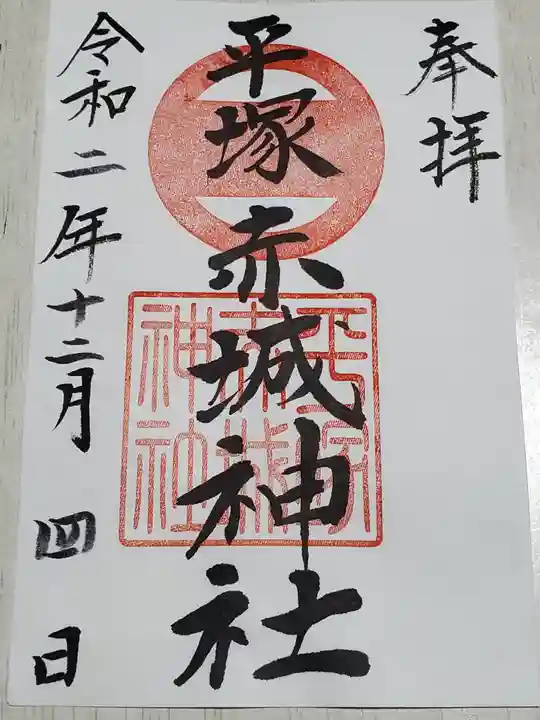 奉拝
平塚赤城神社
平塚
赤城
神社
令和二年十二月四日